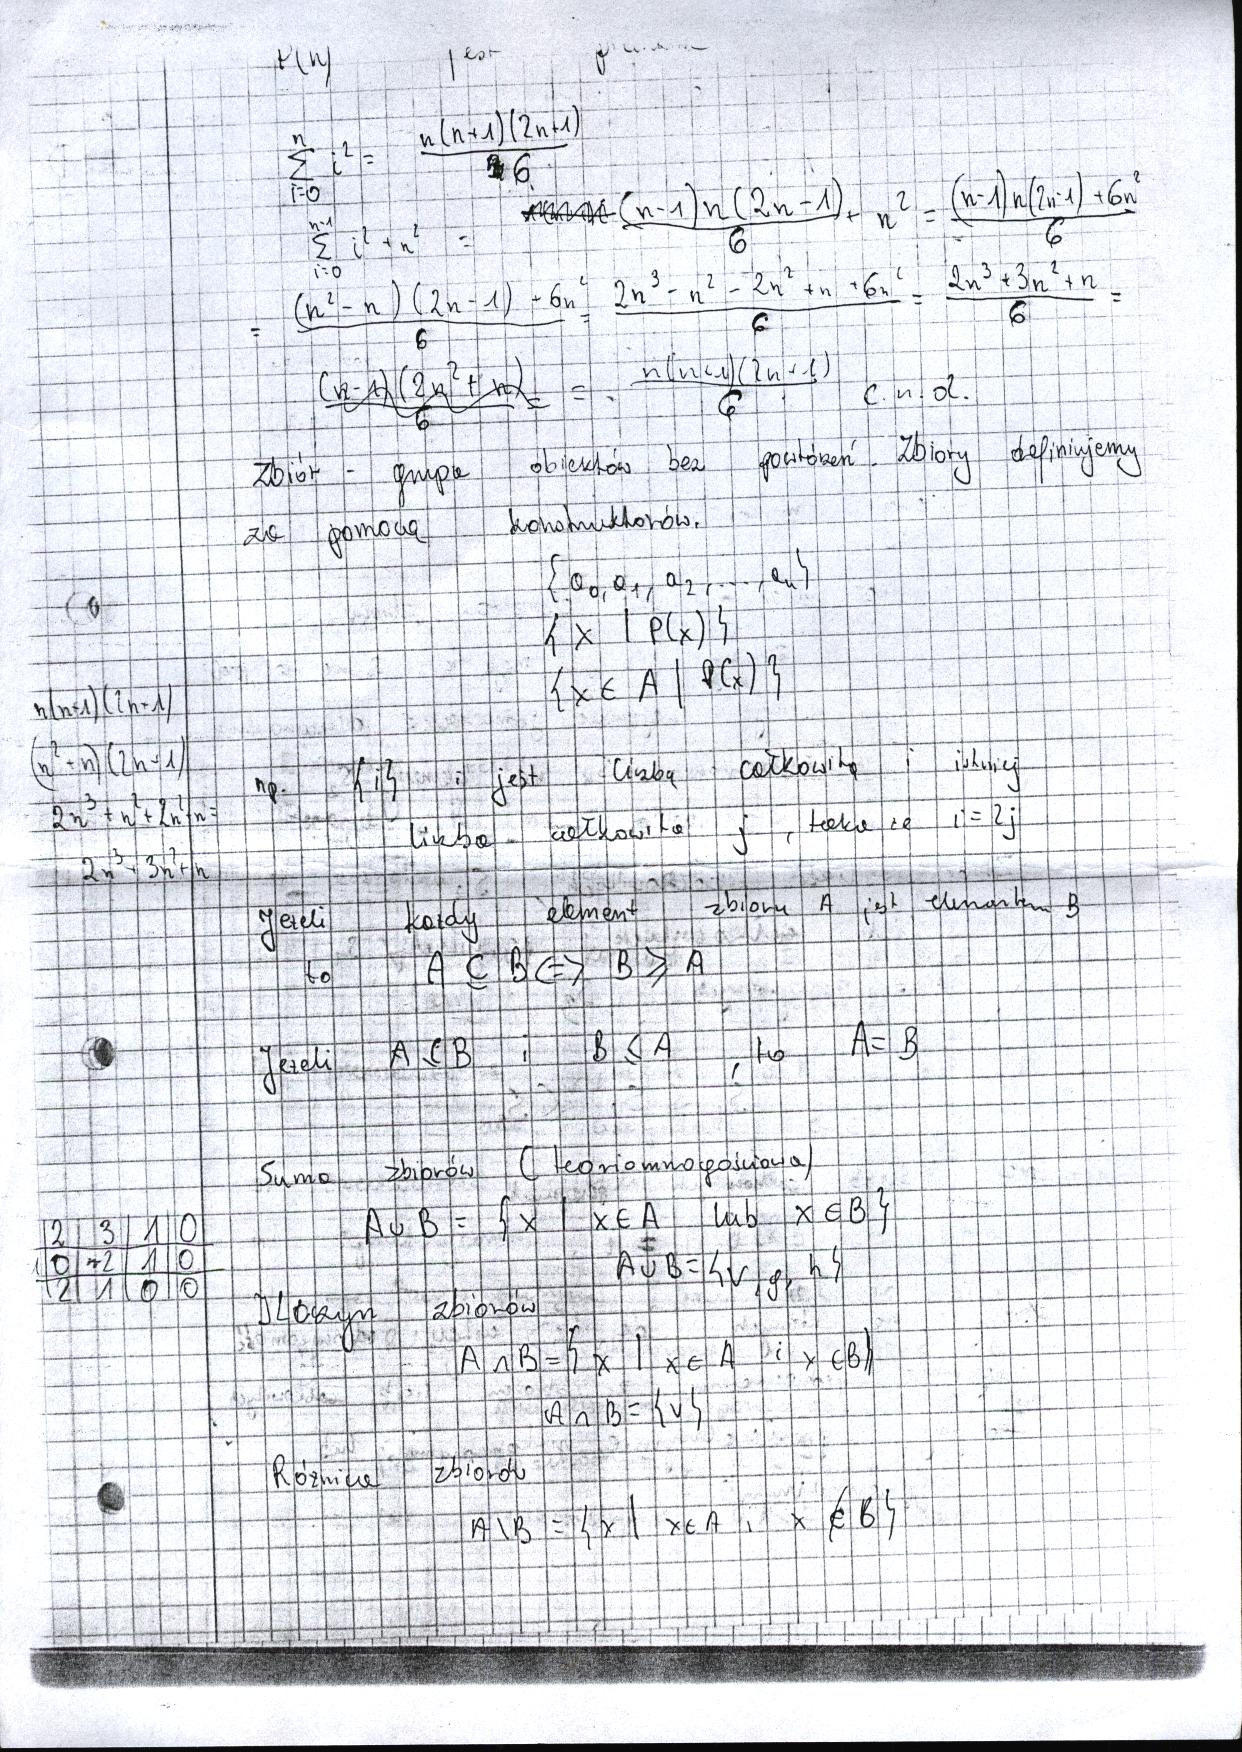 P(n) jest
∑_{i=0}^{n} i² = n(n+1)(2n+1)/6
∑_{i=0}^{n-1} i² + n² = (n-1)n(2n-1)/6 + n² = ((n-1)n(2n-1)+6n²)/6
= ((n²-n)(2n-1)+6n²)/6 = (2n³-n²-2n²+n+6n²)/6 = (2n³+3n²+n)/6 =
(n-1)(2n²+n)/6 = = n(n+1)(2n+1)/6 c.n.d.
Zbiór - grupa obiektów bez powtórzeń. Zbiory definiujemy
za pomocą konstruktorów.
{a₀, a₁, a₂, ..., aₙ}
{x | P(x)}
{x ∈ A | P(x)}
n(n+1)(2n+1)
(n²+n)(2n+1)
2n³+n²+2n²+n=
2n³+3n²+n
np. {i} i jest liczbą całkowitą i istniej
liczba całkowita j, taka że i=2j
Jeżeli każdy element zbioru A jest elementem B
to A ⊆ B <=> B ⩾ A
Jeżeli A ⊆ B i B ⩽ A, to A = B
Suma zbiorów (teoriomnogościowa)
A∪B = {x | x∈A lub x∈B}
A∪B = {v, g, h}
2 3 1 0
0 2 1 0
2 1 0 0
Iloczyn zbiorów
A∩B = {x | x∈A i x∈B}
A∩B = {v}
Różnica zbiorów
A\B = {x | x∈A i x∉B}